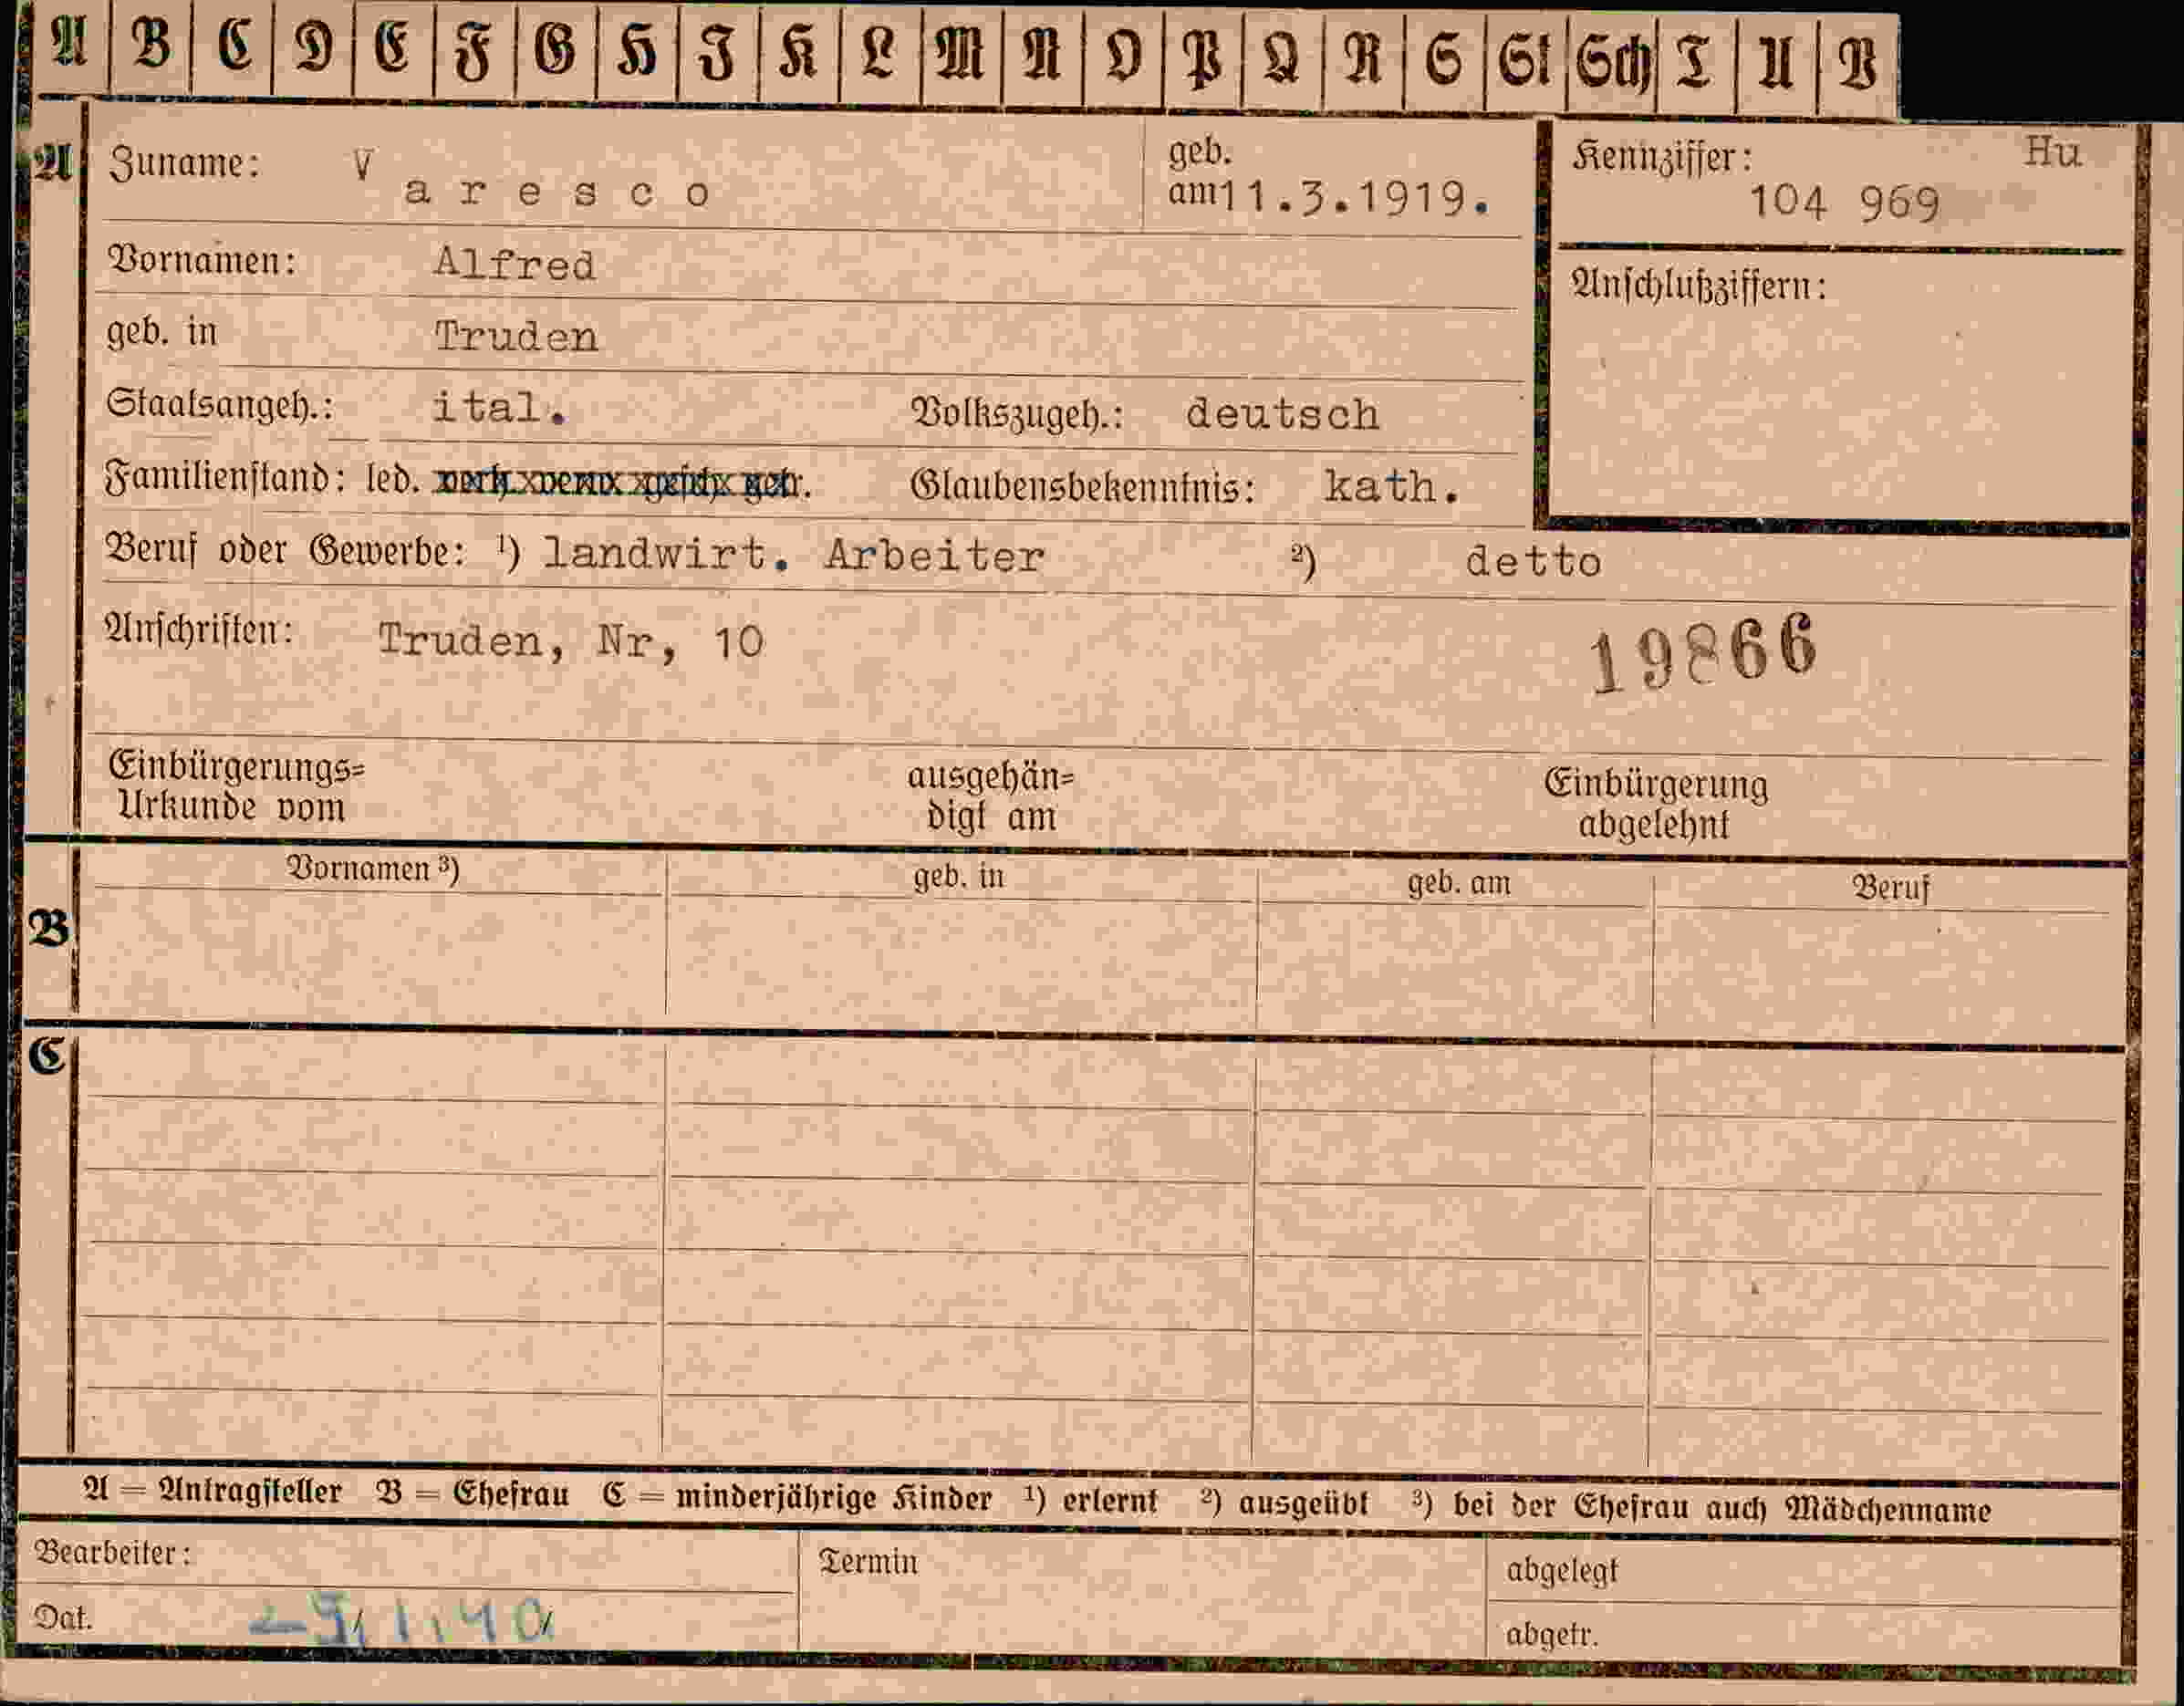 A B C D E F G H I K L M N O P Q R S St Sch T U V
A Zuname: Varesco geb. am 11.3.1919. Kennziffer: Hu
104 969
Vornamen: Alfred Anschlußziffern:
geb. in Truden
Staatsangeh.: ital. Volkszugeh.: deutsch
Familienstand: led. verh. verw. gesch. getr. Glaubensbekenntnis: kath.
Beruf oder Gewerbe: ¹) landwirt. Arbeiter ²) detto
Anschriften: Truden, Nr, 10
19866
Einbürgerungs= ausgehän= Einbürgerung
Urkunde vom digt am abgelehnt
Vornamen ³) geb. in geb. am Beruf
B
C
A = Antragsteller B = Ehefrau C = minderjährige Kinder ¹) erlernt ²) ausgeübt ³) bei der Ehefrau auch Mädchenname
Bearbeiter: Termin abgelegt
Dat. abgetr.